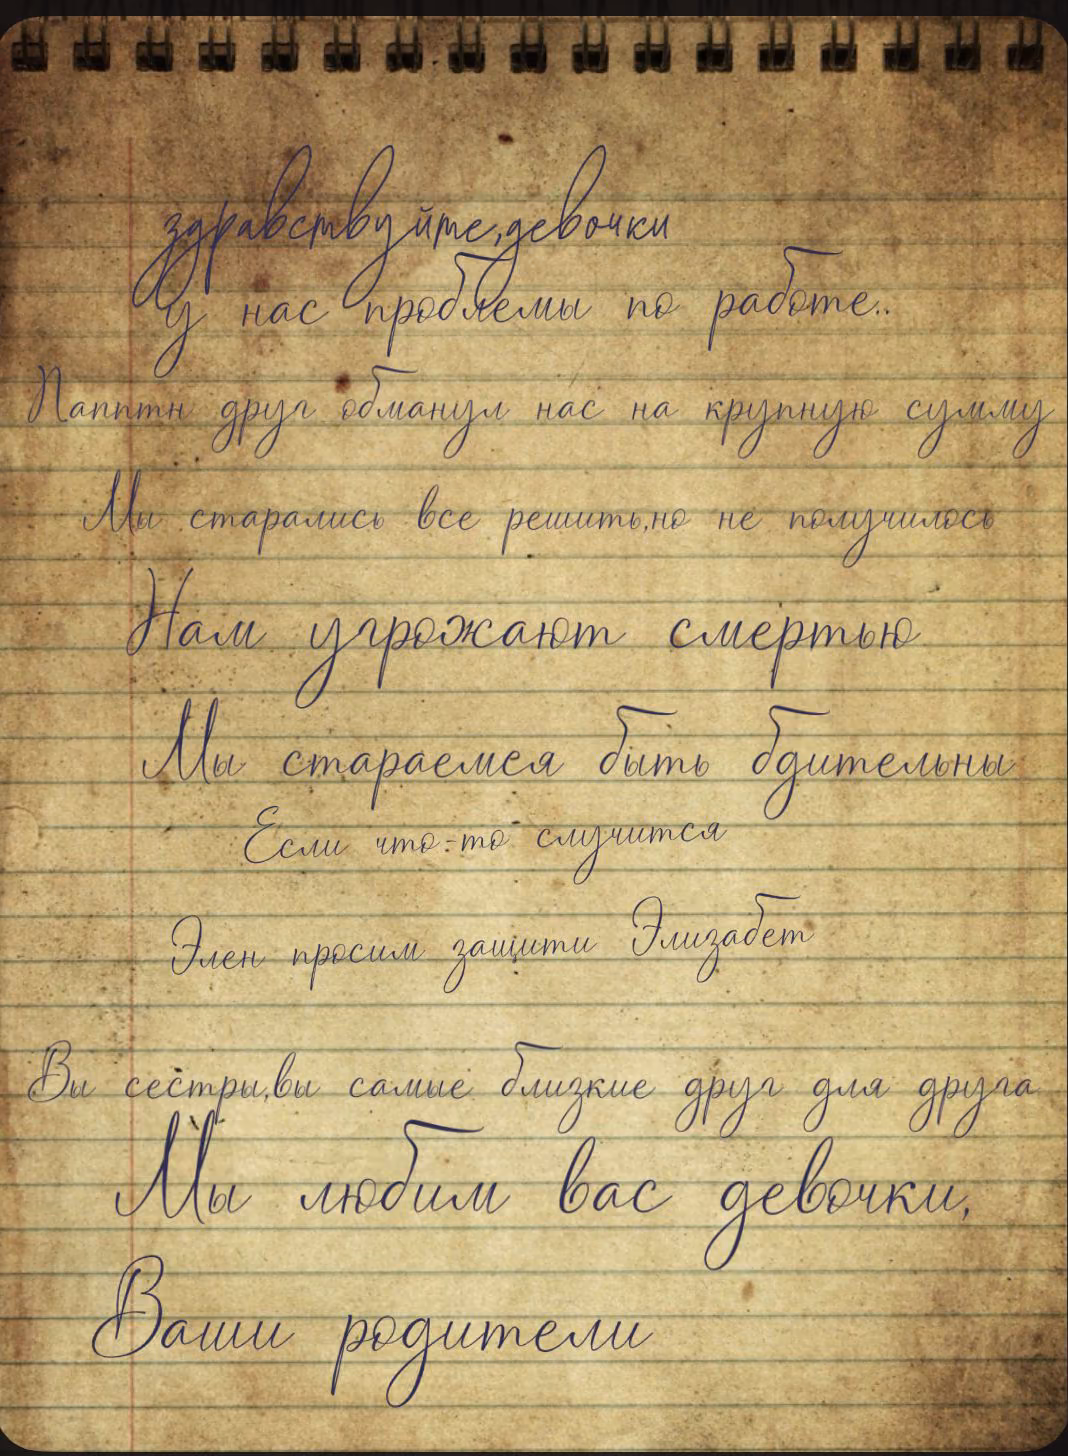 здравствуйте,девочки
У нас проблемы по работе..
Папптн друг обманул нас на крупную сумму
Мы старались все решить,но не получилось
Нам угрожают смертью
Мы стараемся быть бдительны
Если что-то случится
Элен просим защити Элизабет
Вы сестры,вы самые близкие друг для друга
Мы любим вас девочки,
Ваши родители